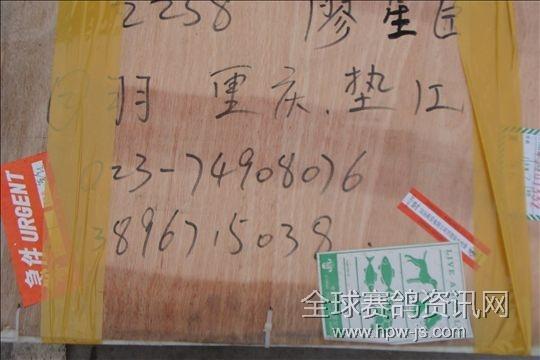 2258 廖星臣
羽 重庆.垫江
023-74908076
13896715038.
急件 URGENT
LIVE A
全球赛鸽资讯网
www.hpw-js.com